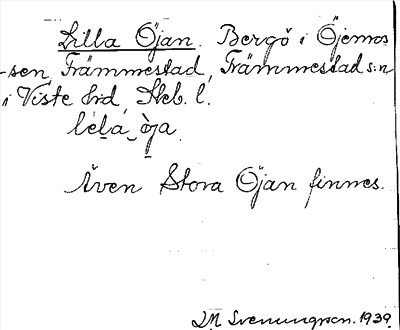 Lilla Öjan. Bergö i Öjemos
-sen, Främmestad, Främmestad s:n
i Viste hrd, Skb. l.
lèla òja.
Även Stora Öjan finnes.
DM Svenungsson. 1939